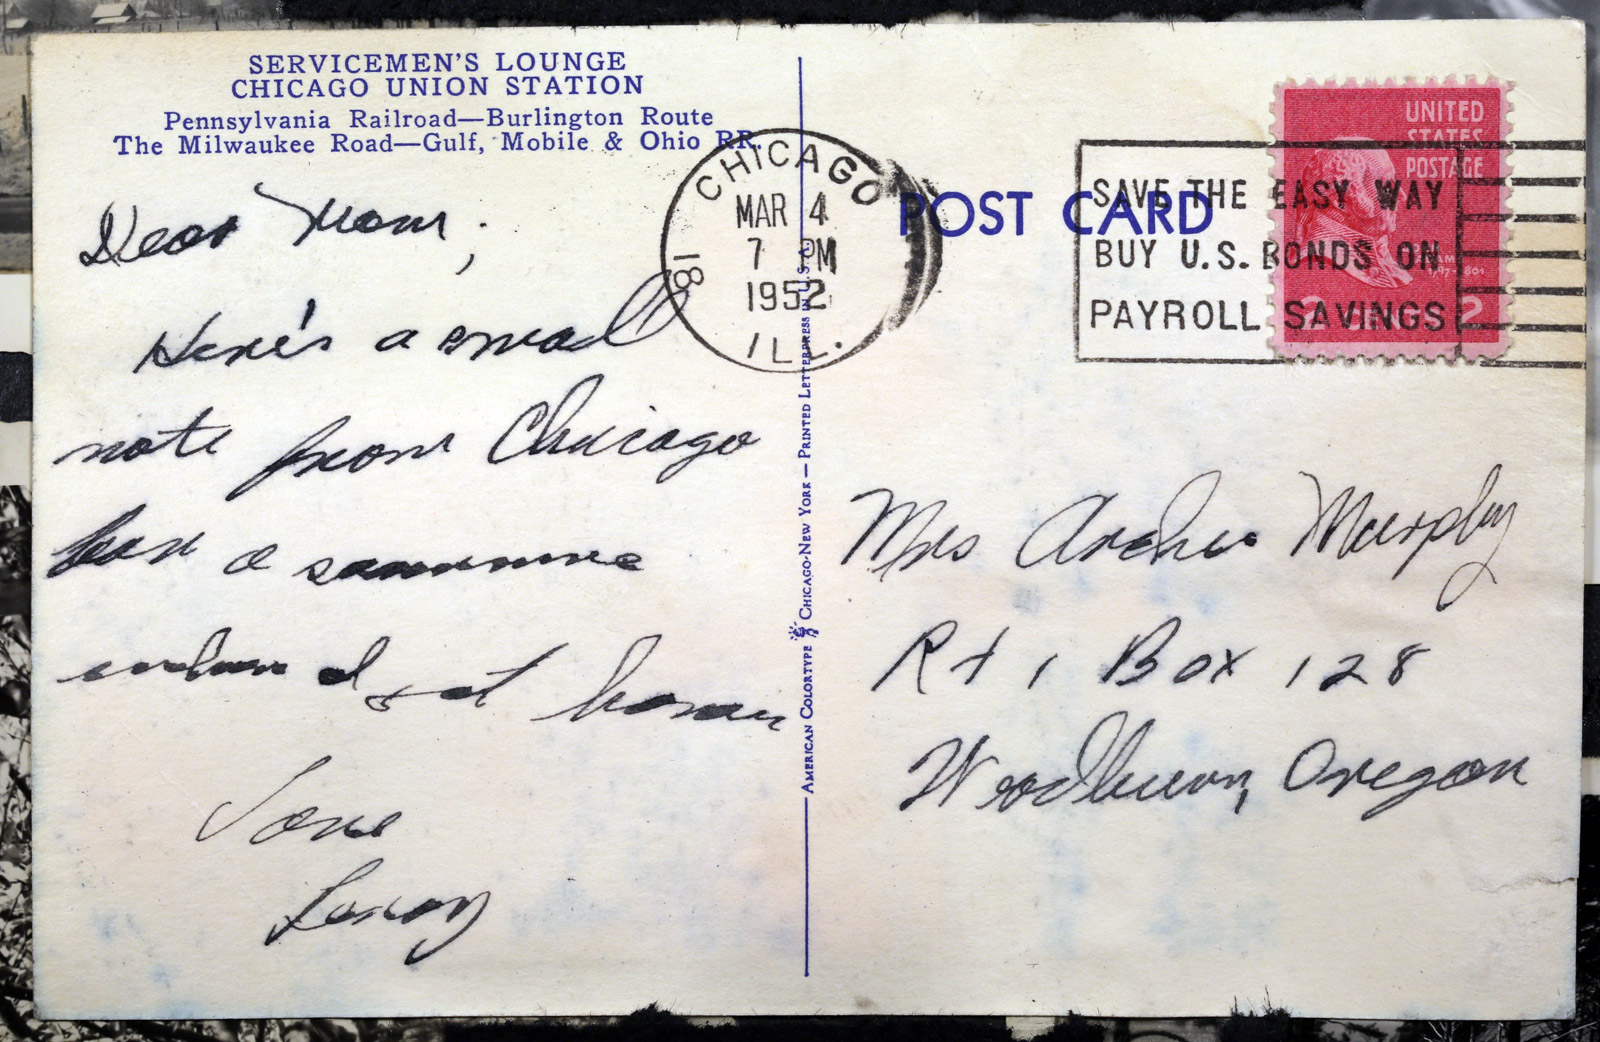 SERVICEMEN'S LOUNGE
CHICAGO UNION STATION
Pennsylvania Railroad—Burlington Route
The Milwaukee Road—Gulf, Mobile & Ohio RR.
Dear Mom,
Here's a small
note from Chicago
for a
I at
Love
Leroy
AMERICAN COLORTYPE CHICAGO-NEW YORK — PRINTED LETTERPRESS IN U.S.A.
CHICAGO
MAR 4
7 PM
1952
ILL.
18
POST CARD
SAVE THE EASY WAY
BUY U.S. BONDS ON
PAYROLL SAVINGS
UNITED
STATES
POSTAGE
2
Mrs Archie Murphy
Rt 1 Box 128
Woodburn, Oregon